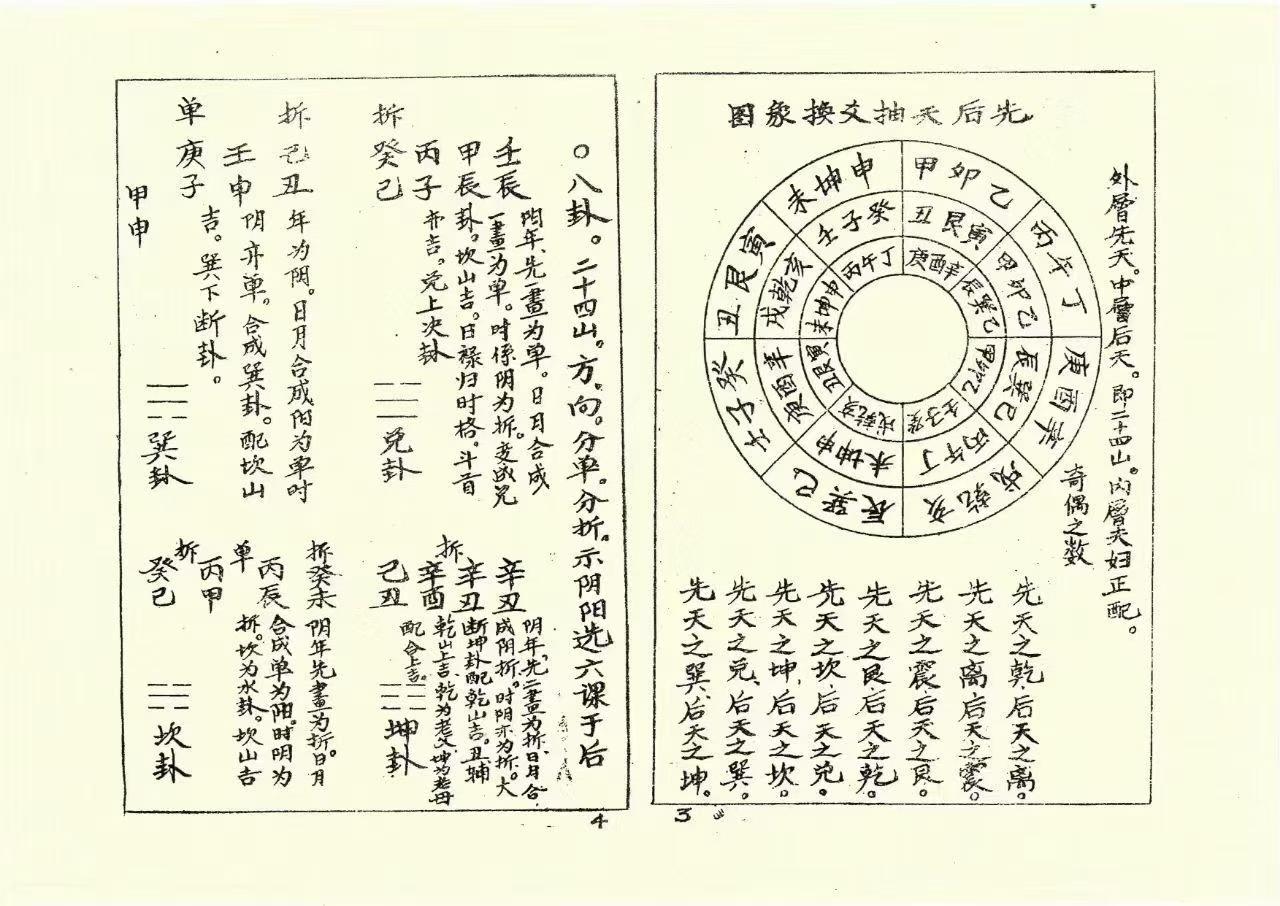 先后天抽爻换象图
外层先天。中层后天。即二十四山。内层夫妇正配。
奇偶之数
甲卯乙
丙午丁
庚酉辛
戌乾亥
辰巽巳
壬子癸
丑艮寅
未坤申
丑艮寅
甲卯乙
辰巽巳
丙午丁
未坤申
庚酉辛
戌乾亥
壬子癸
庚酉辛
辰巽巳
甲卯乙
壬子癸
戌乾亥
丑艮寅
未坤申
丙午丁
先天之乾后天之离。
先天之离后天之震。
先天之震后天之艮。
先天之艮后天之乾。
先天之坎后天之兑。
先天之坤后天之坎。
先天之兑后天之巽。
先天之巽后天之坤。
3
○八卦。二十四山。方、向。分单。分拆。示阴阳选六课于后
壬辰 阳年、先一画为单。日月合成
甲辰 一画为单。时系阴为拆。变成兑
丙子 卦。坎山吉。日禄归时格。斗首
亦吉。兑上次卦
拆 癸巳
兑卦
拆 己丑 年为阴。日月合成阳为单时
壬申 阴亦单。合成巽卦。配坎山
单 庚子 吉。巽下断卦。
甲申
巽卦
辛丑 阴年、先二画为拆、日月合
拆 辛丑 成阴拆。时阴亦为拆。大
辛酉 断坤卦配乾山吉。丑辅
己丑 乾山上吉、乾为老父坤为老母
配合上吉。
坤卦
拆 癸未 阴年先画为拆。日月
丙辰 合成单为阳。时阴为
单 丙甲 拆。坎为水卦。坎山吉
拆 癸巳
坎卦
4